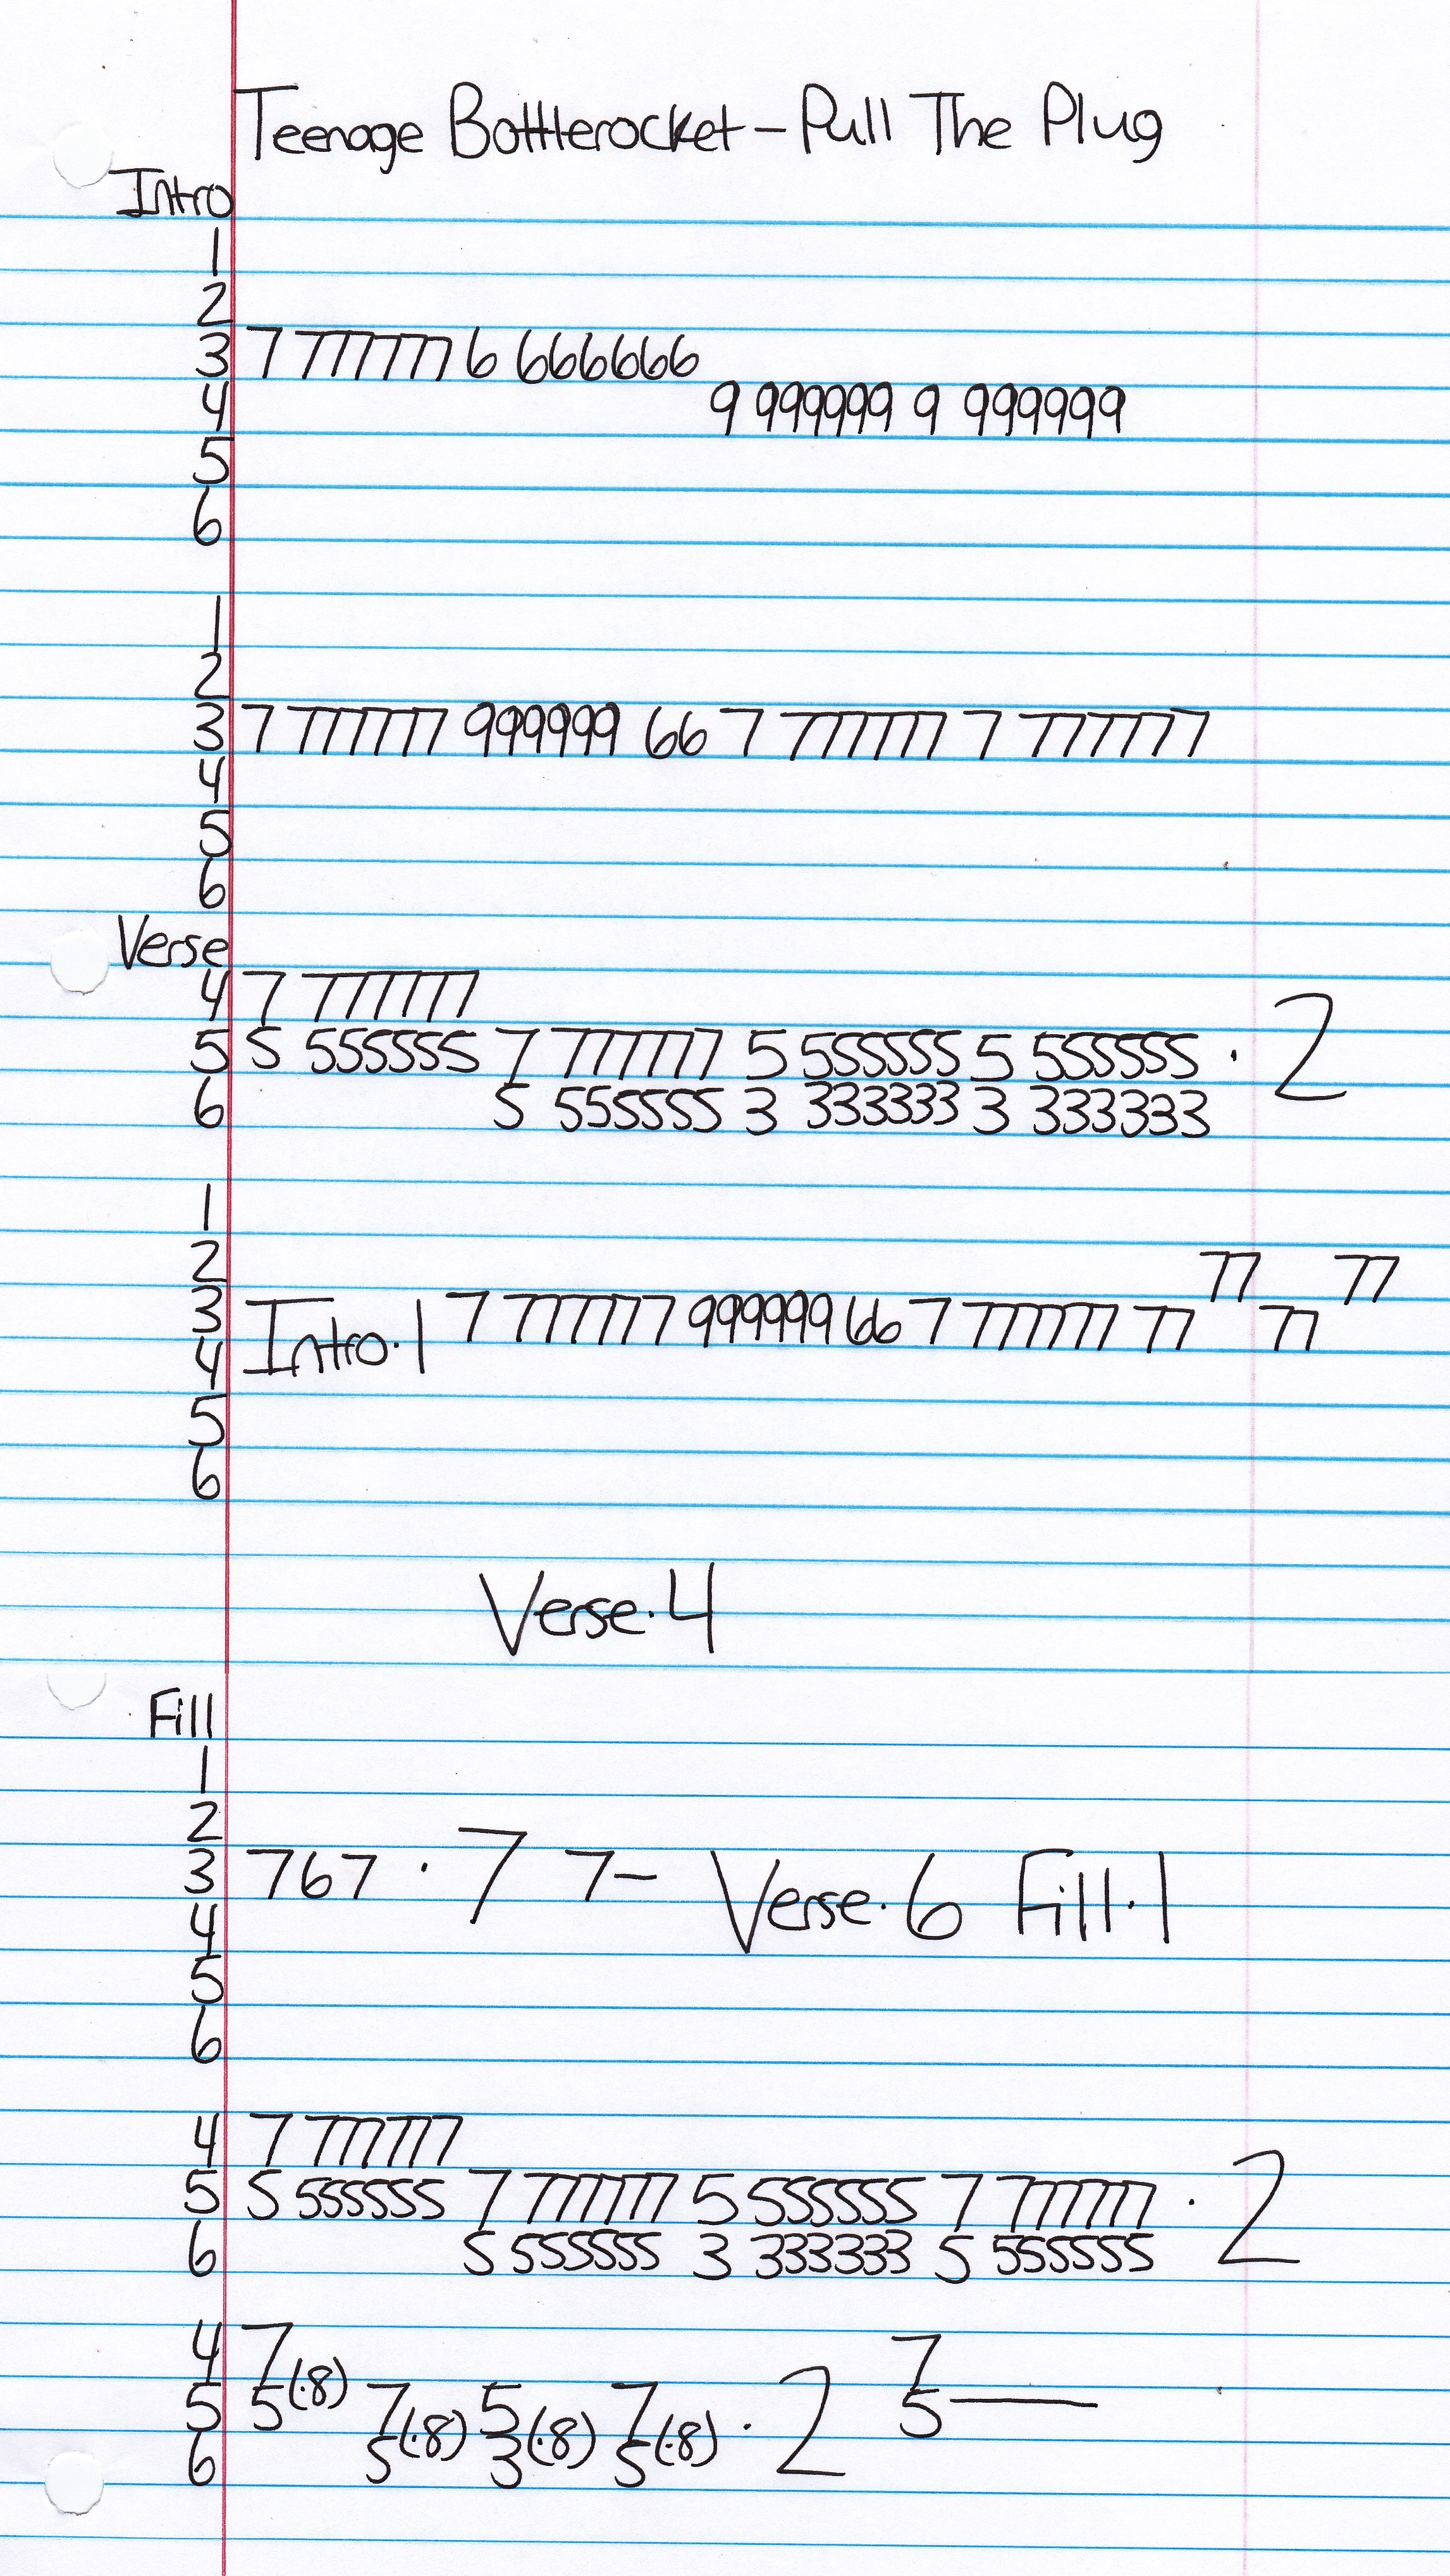 Teenage Bottlerocket - Pull The Plug
Intro
1
2
3 7 777777 6 666666
4 9 999999 9 999999
5
6
1
2
3 7 777777 999999 66 7 777777 7 777777
4
5
6
Verse
4 7 777777
5 5 555555 7 777777 5 555555 5 555555 · 2
6 5 555555 3 333333 3 333333
1
2 77 77
3 Intro·1 7 777777 999999 66 7 777777 77 77
4
5
6
Verse·4
Fill
1
2
3 767 · 7 7– Verse·6 Fill·1
4
5
6
4 7 777777
5 5 555555 7 777777 5 555555 7 777777 · 2
6 5 555555 3 333333 5 555555
4 7 7
5 5(·8) 7 5 7 · 2 5—
6 5(·8) 3(·8) 5(·8)